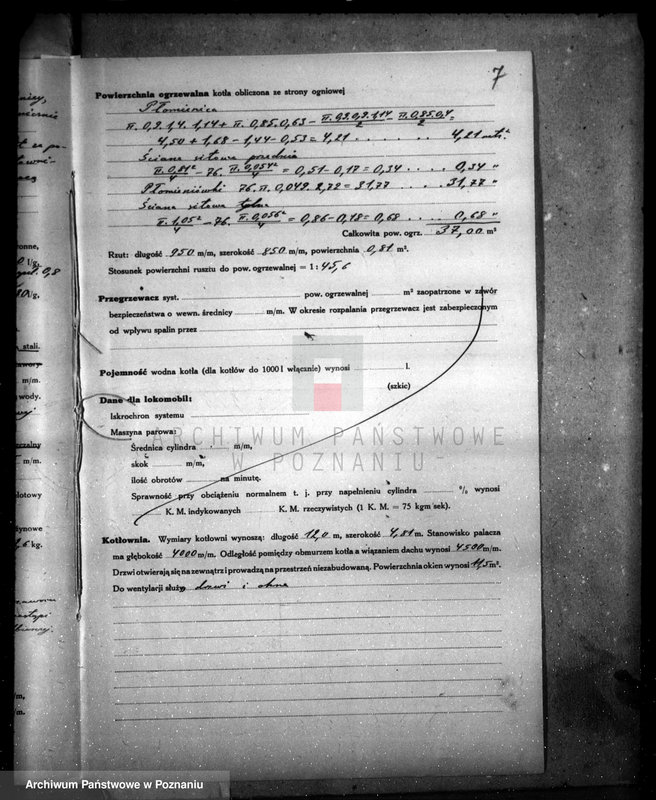 7
Powierzchnia ogrzewalna kotła obliczona ze strony ogniowej
Płomienica
π. 0,9. 1,4. 1,14 + π. 0,85. 0,63 - π. 0,9. 0,9. 1,14/2 - π. 0,85. 0,4/2 =
4,50 + 1,68 - 1,44 - 0,53 = 4,21 4,21 mtr²
Ściana sitowa przednia
π. 0,81²/4 - 76. π. 0,054²/4 = 0,51 - 0,17 = 0,34 0,34 "
Płomieniówki 76. π. 0,049. 2,72 = 31,77 31,77 "
Ściana sitowa tylna
π. 1,05²/4 - 76. π. 0,056²/4 = 0,86 - 0,18 = 0,68 0,68 "
Całkowita pow. ogrz. 37,00 m²
Rzut: długość 950 m/m, szerokość 850 m/m, powierzchnia 0,81 m².
Stosunek powierzchni rusztu do pow. ogrzewalnej = 1 : 45,6
Przegrzewacz syst. pow. ogrzewalnej m² zaopatrzone w zawór
bezpieczeństwa o wewn. średnicy m/m. W okresie rozpalania przegrzewacz jest zabezpieczonym
od wpływu spalin przez
Pojemność wodna kotła (dla kotłów do 1000 l włącznie) wynosi l.
(szkic)
Dane dla lokomobil:
Iskrochron systemu
Maszyna parowa:
Średnica cylindra m/m,
skok m/m,
ilość obrotów na minutę.
Sprawność przy obciążeniu normalnem t. j. przy napełnieniu cylindra % wynosi
K. M. indykowanych K. M. rzeczywistych (1 K. M. = 75 kgm sek).
Kotłownia. Wymiary kotłowni wynoszą: długość 12,0 m, szerokość 4,81 m. Stanowisko palacza
ma głębokość 4000 m/m. Odległość pomiędzy obmurzem kotła a wiązaniem dachu wynosi 4500 m/m.
Drzwi otwierają się na zewnątrz i prowadzą na przestrzeń niezabudowaną. Powierzchnia okien wynosi 11,5 m².
Do wentylacji służą drzwi i okna
ARCHIWUM PAŃSTWOWE
W POZNANIU
Archiwum Państwowe w Poznaniu